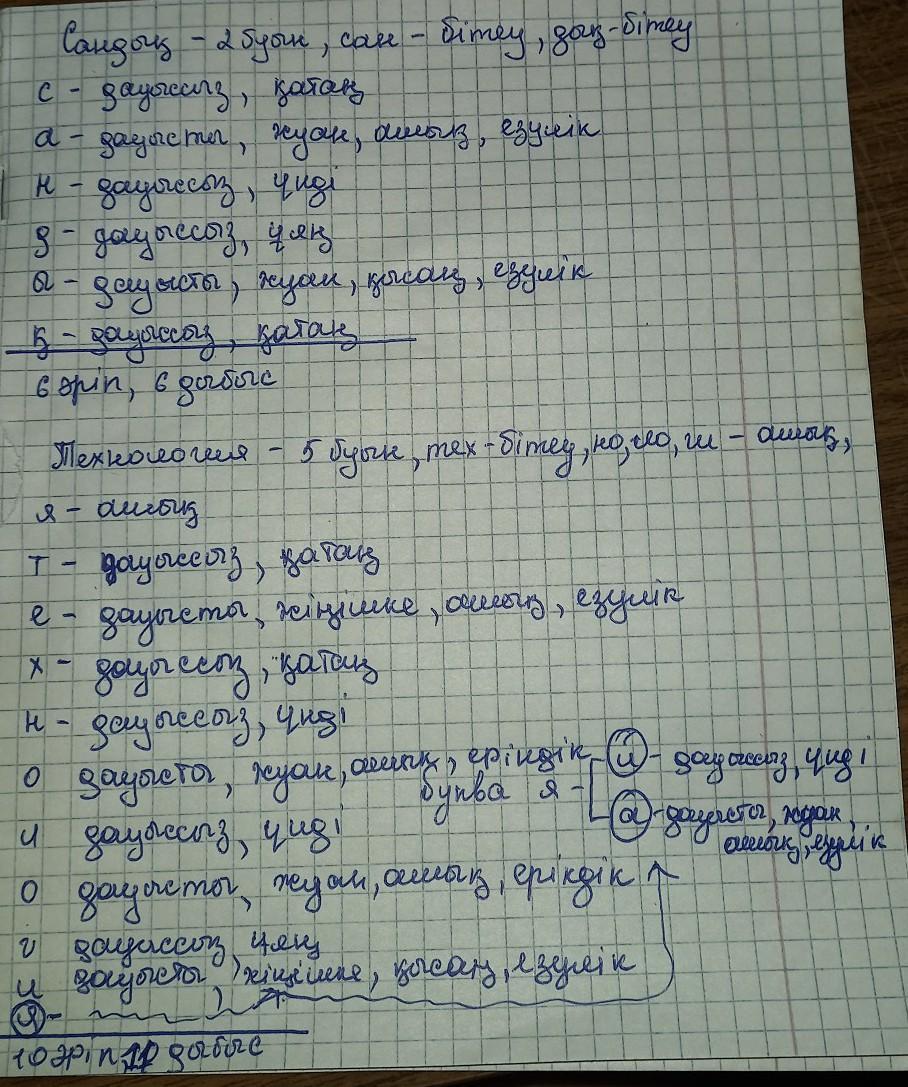 Сандық - 2 буын, сан - бітеу, дық-бітеу
с - дауыссыз, қатаң
а - дауысты, жуан, ашық, езулік
н - дауыссыз, үнді
д - дауыссыз, ұяң
а - дауысты, жуан, қысаң, езулік
қ - дауыссыз, қатаң
6 әріп, 6 дыбыс
Технология - 5 буын, тех-бітеу, но, ло, ги - ашық,
я - ашық
т - дауыссыз, қатаң
е - дауысты, жіңішке, ашық, езулік
х - дауыссыз, қатаң
н - дауыссыз, үнді
о дауысты, жуан, ашық, еріндік
буква я - й - дауыссыз, үнді
а - дауысты, жуан,
ашық, езулік
л дауыссыз, үнді
о дауысты, жуан, ашық, еріндік
г дауыссыз, ұяң
и дауысты, жіңішке, қысаң, езулік
я -
10 әріп, 11 дыбыс